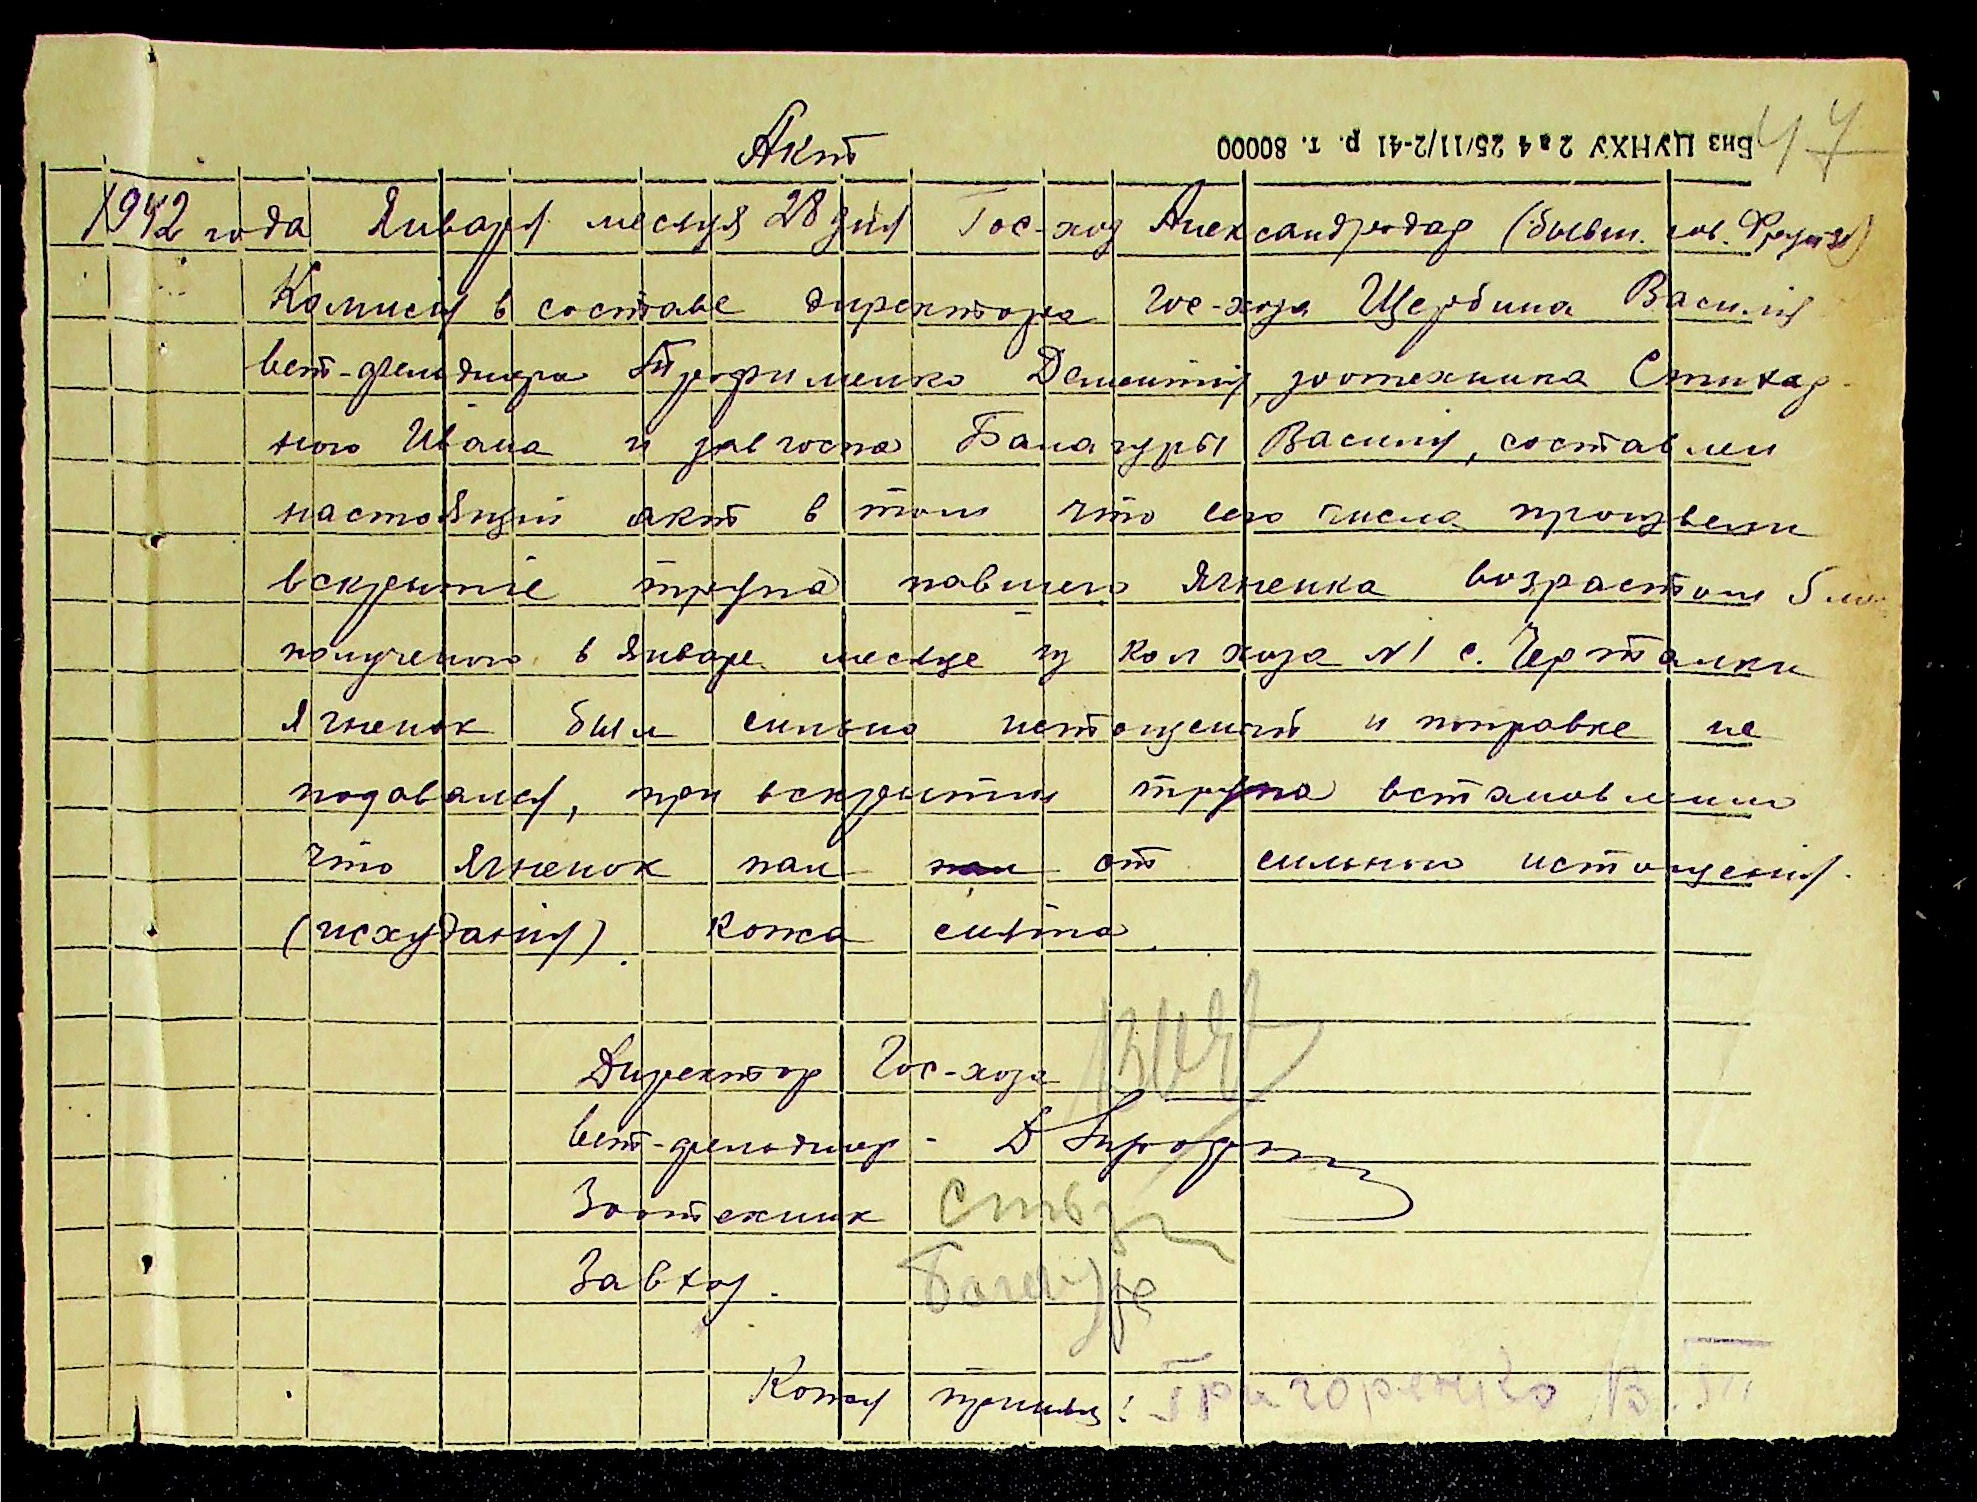 Акт
Биз ЦУНХУ 2 в 4 25/11/2-41 р. т. 80000
47
1942 года Января месяця 28 дня Гос-хоз Александродар (бывш. сов. Фрунзе)
Комисія в составе директора Гос-хоза Щербина Василія
вет-фельдшера Трофименко Дементія, зоотехника Стихар-
ного Ивана и завгоспа Балагуры Василія, составлен
настоящій акт в том что сего числа произвели
вскрытіе трупа павшего ягненка возрастом 5 мес
полученого в Январе месяце из колхоза №1 с. Черталки
Ягненок был сильно истощеный и поправке не
подовался, при вскрытии трупа встановлино
что ягненок пал пал от сильного истощения.
(исхуданія). Кожа снята.
Директор Гос-хоза
вет-фельдшер - Д
Зоотехник
Завхоз. Балагура
Кожу принял: Григоренко В.